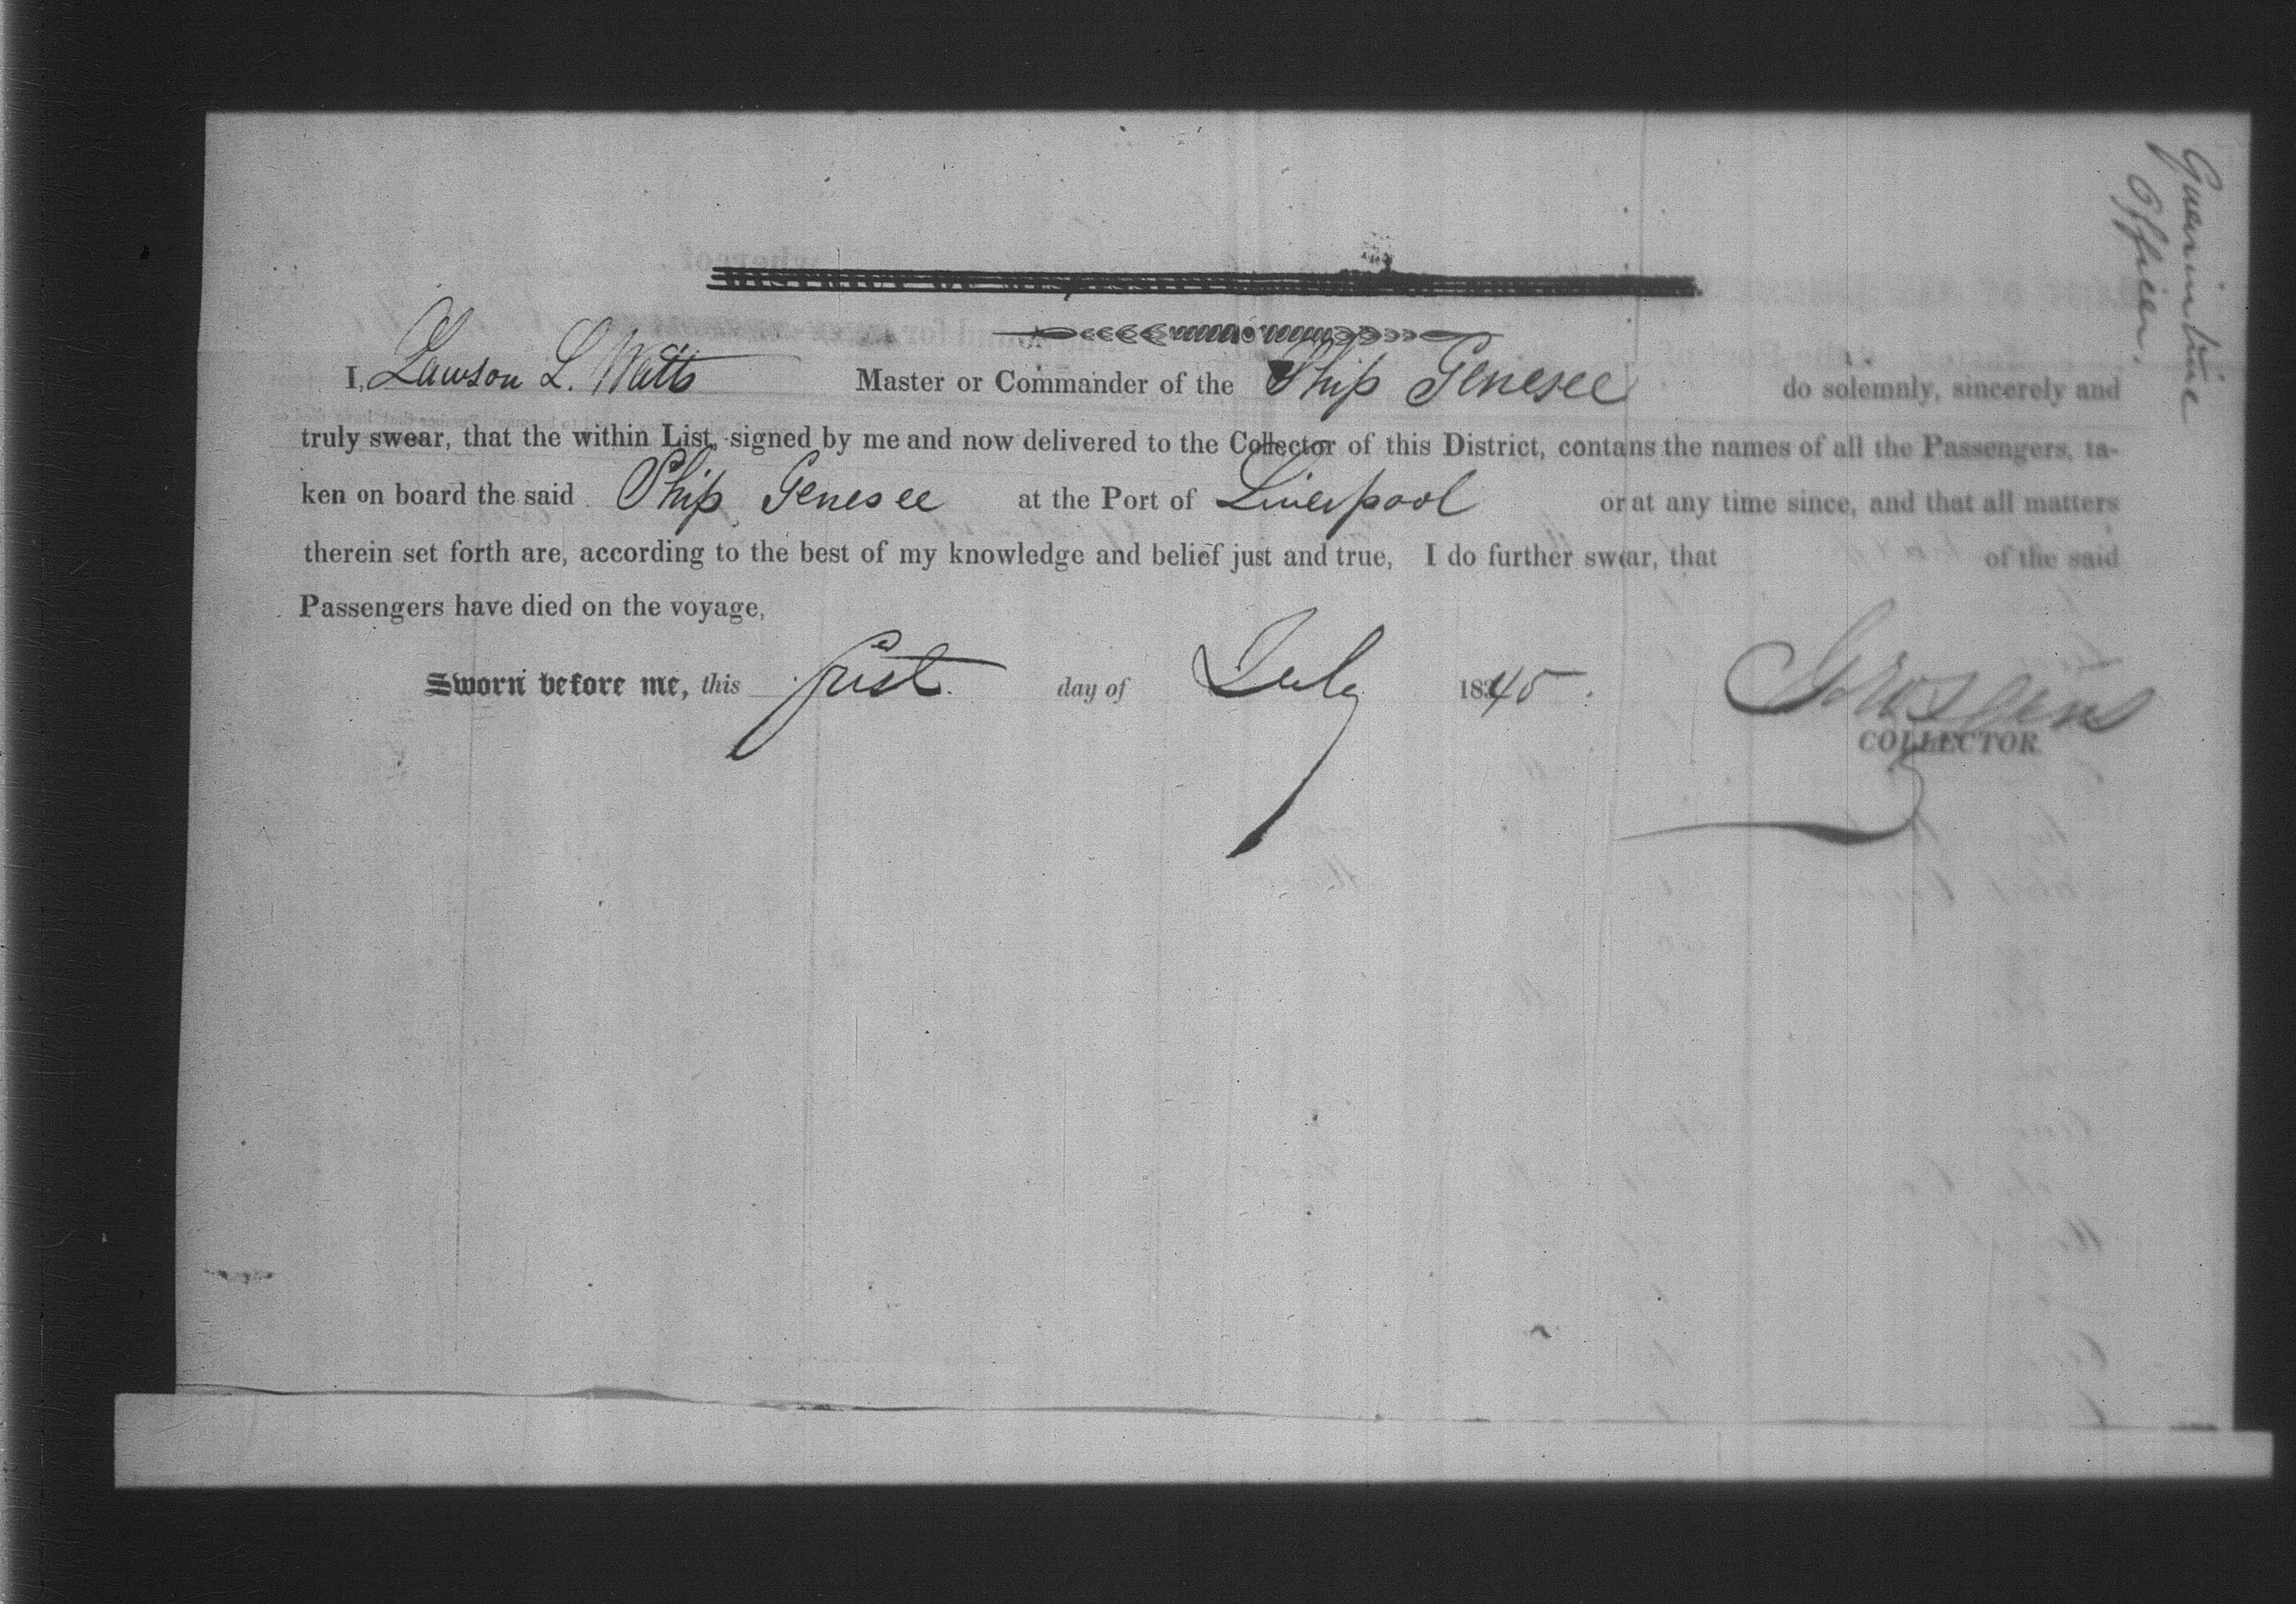 Quarintine
Officer.
I, Lawson L. Watts Master or Commander of the Ship Genesee do solemnly, sincerely and
truly swear, that the within List, signed by me and now delivered to the Collector of this District, contans the names of all the Passengers, ta-
ken on board the said Ship Genesee at the Port of Liverpool or at any time since, and that all matters
therein set forth are, according to the best of my knowledge and belief just and true, I do further swear, that of the said
Passengers have died on the voyage,
Sworn before me, this first day of July 1845.
COLLECTOR